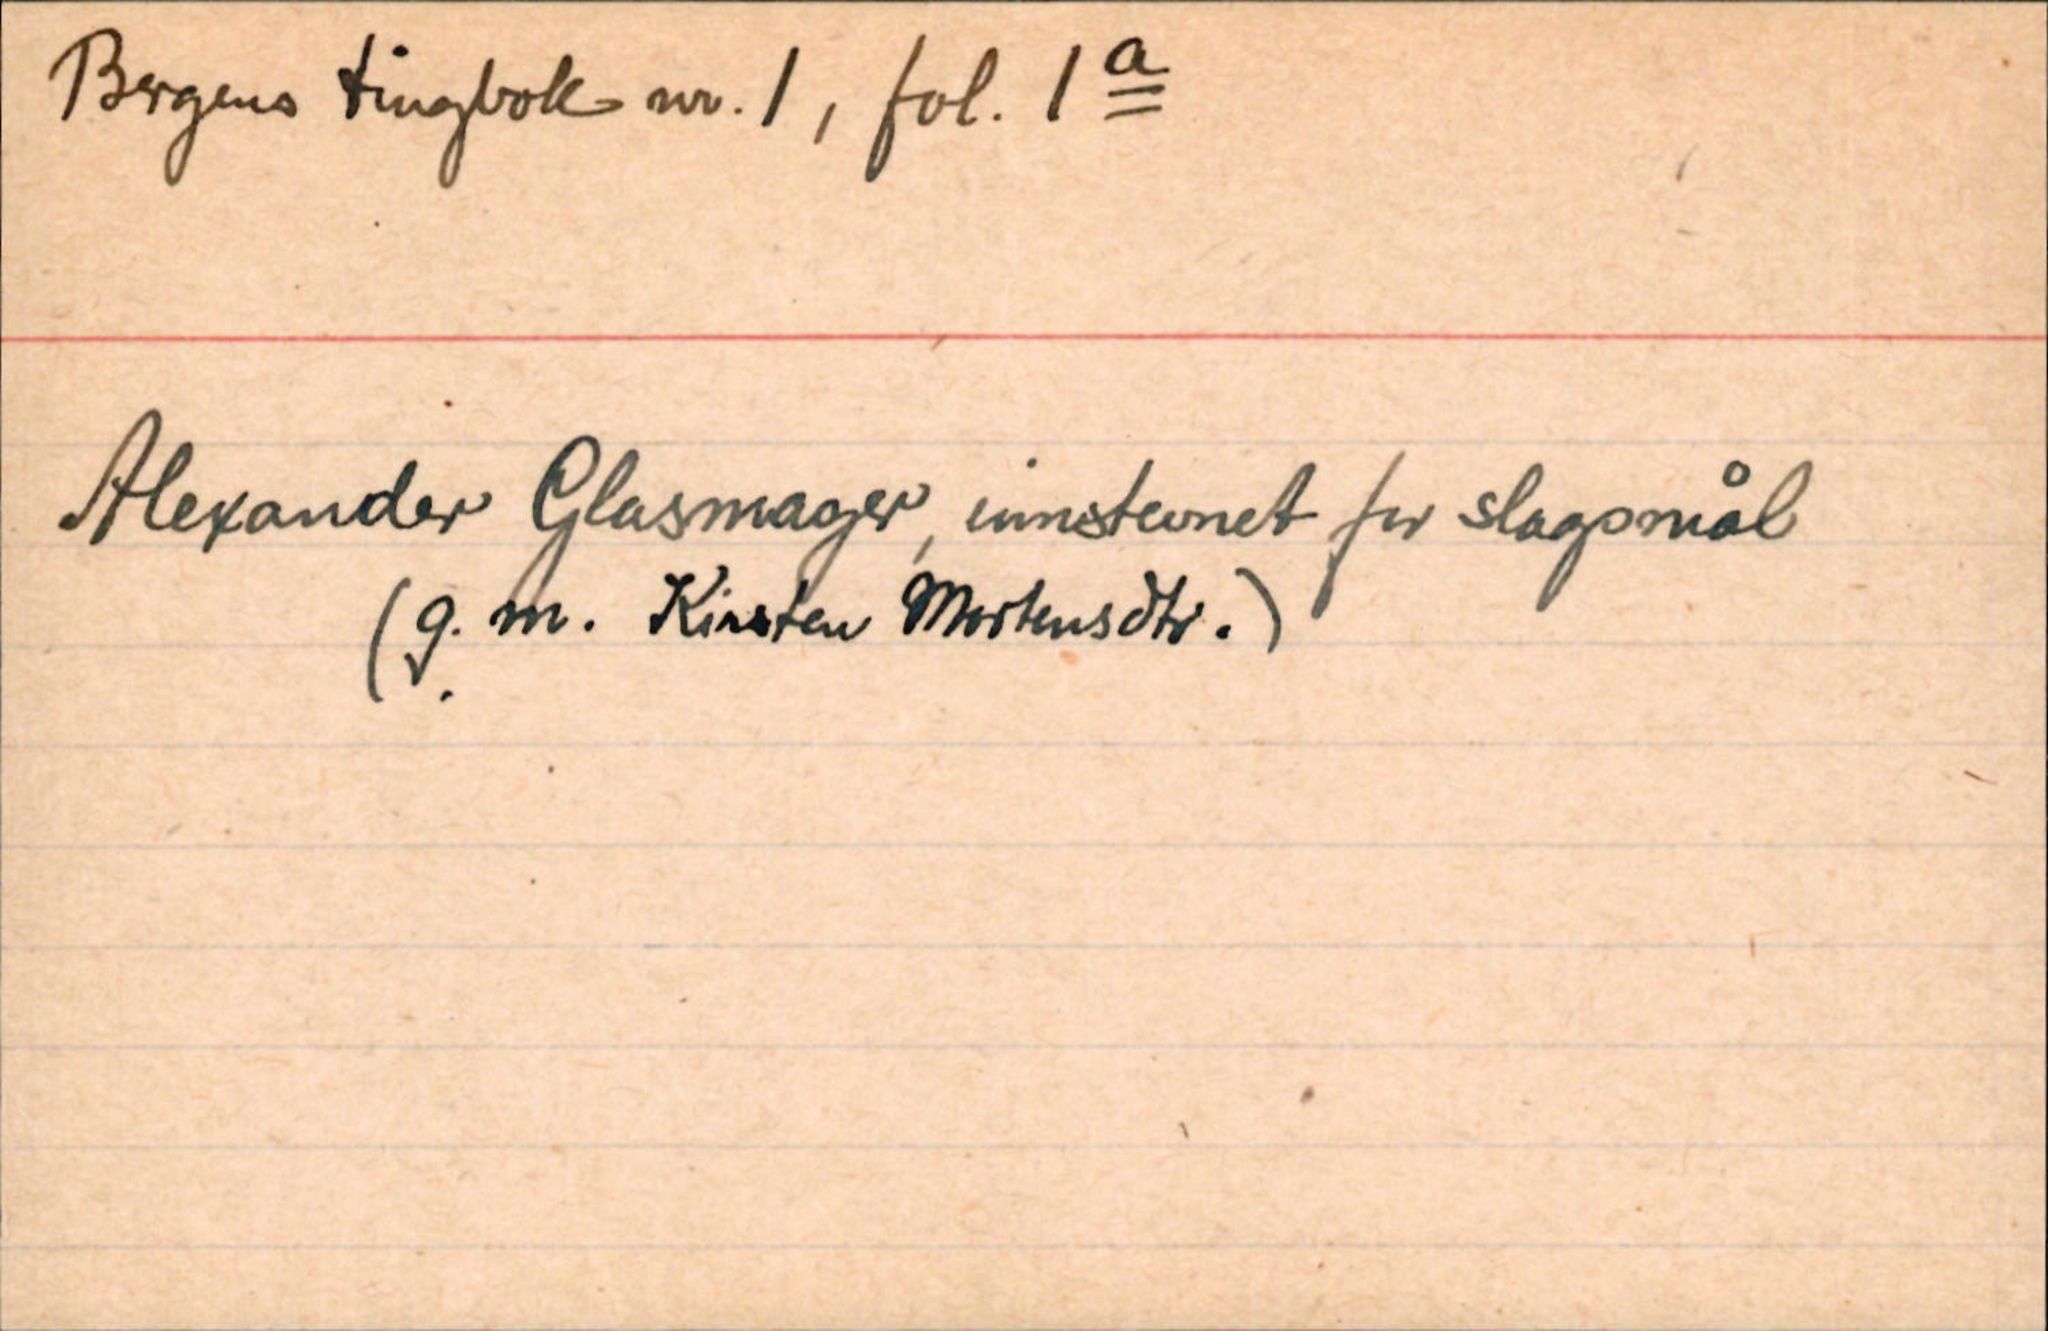 Bergens tingbok nr. 1, fol. 1a
Alexander Glasmager, innstevnet for slagsmål
(g. m. Kirsten Mortensdtr.)